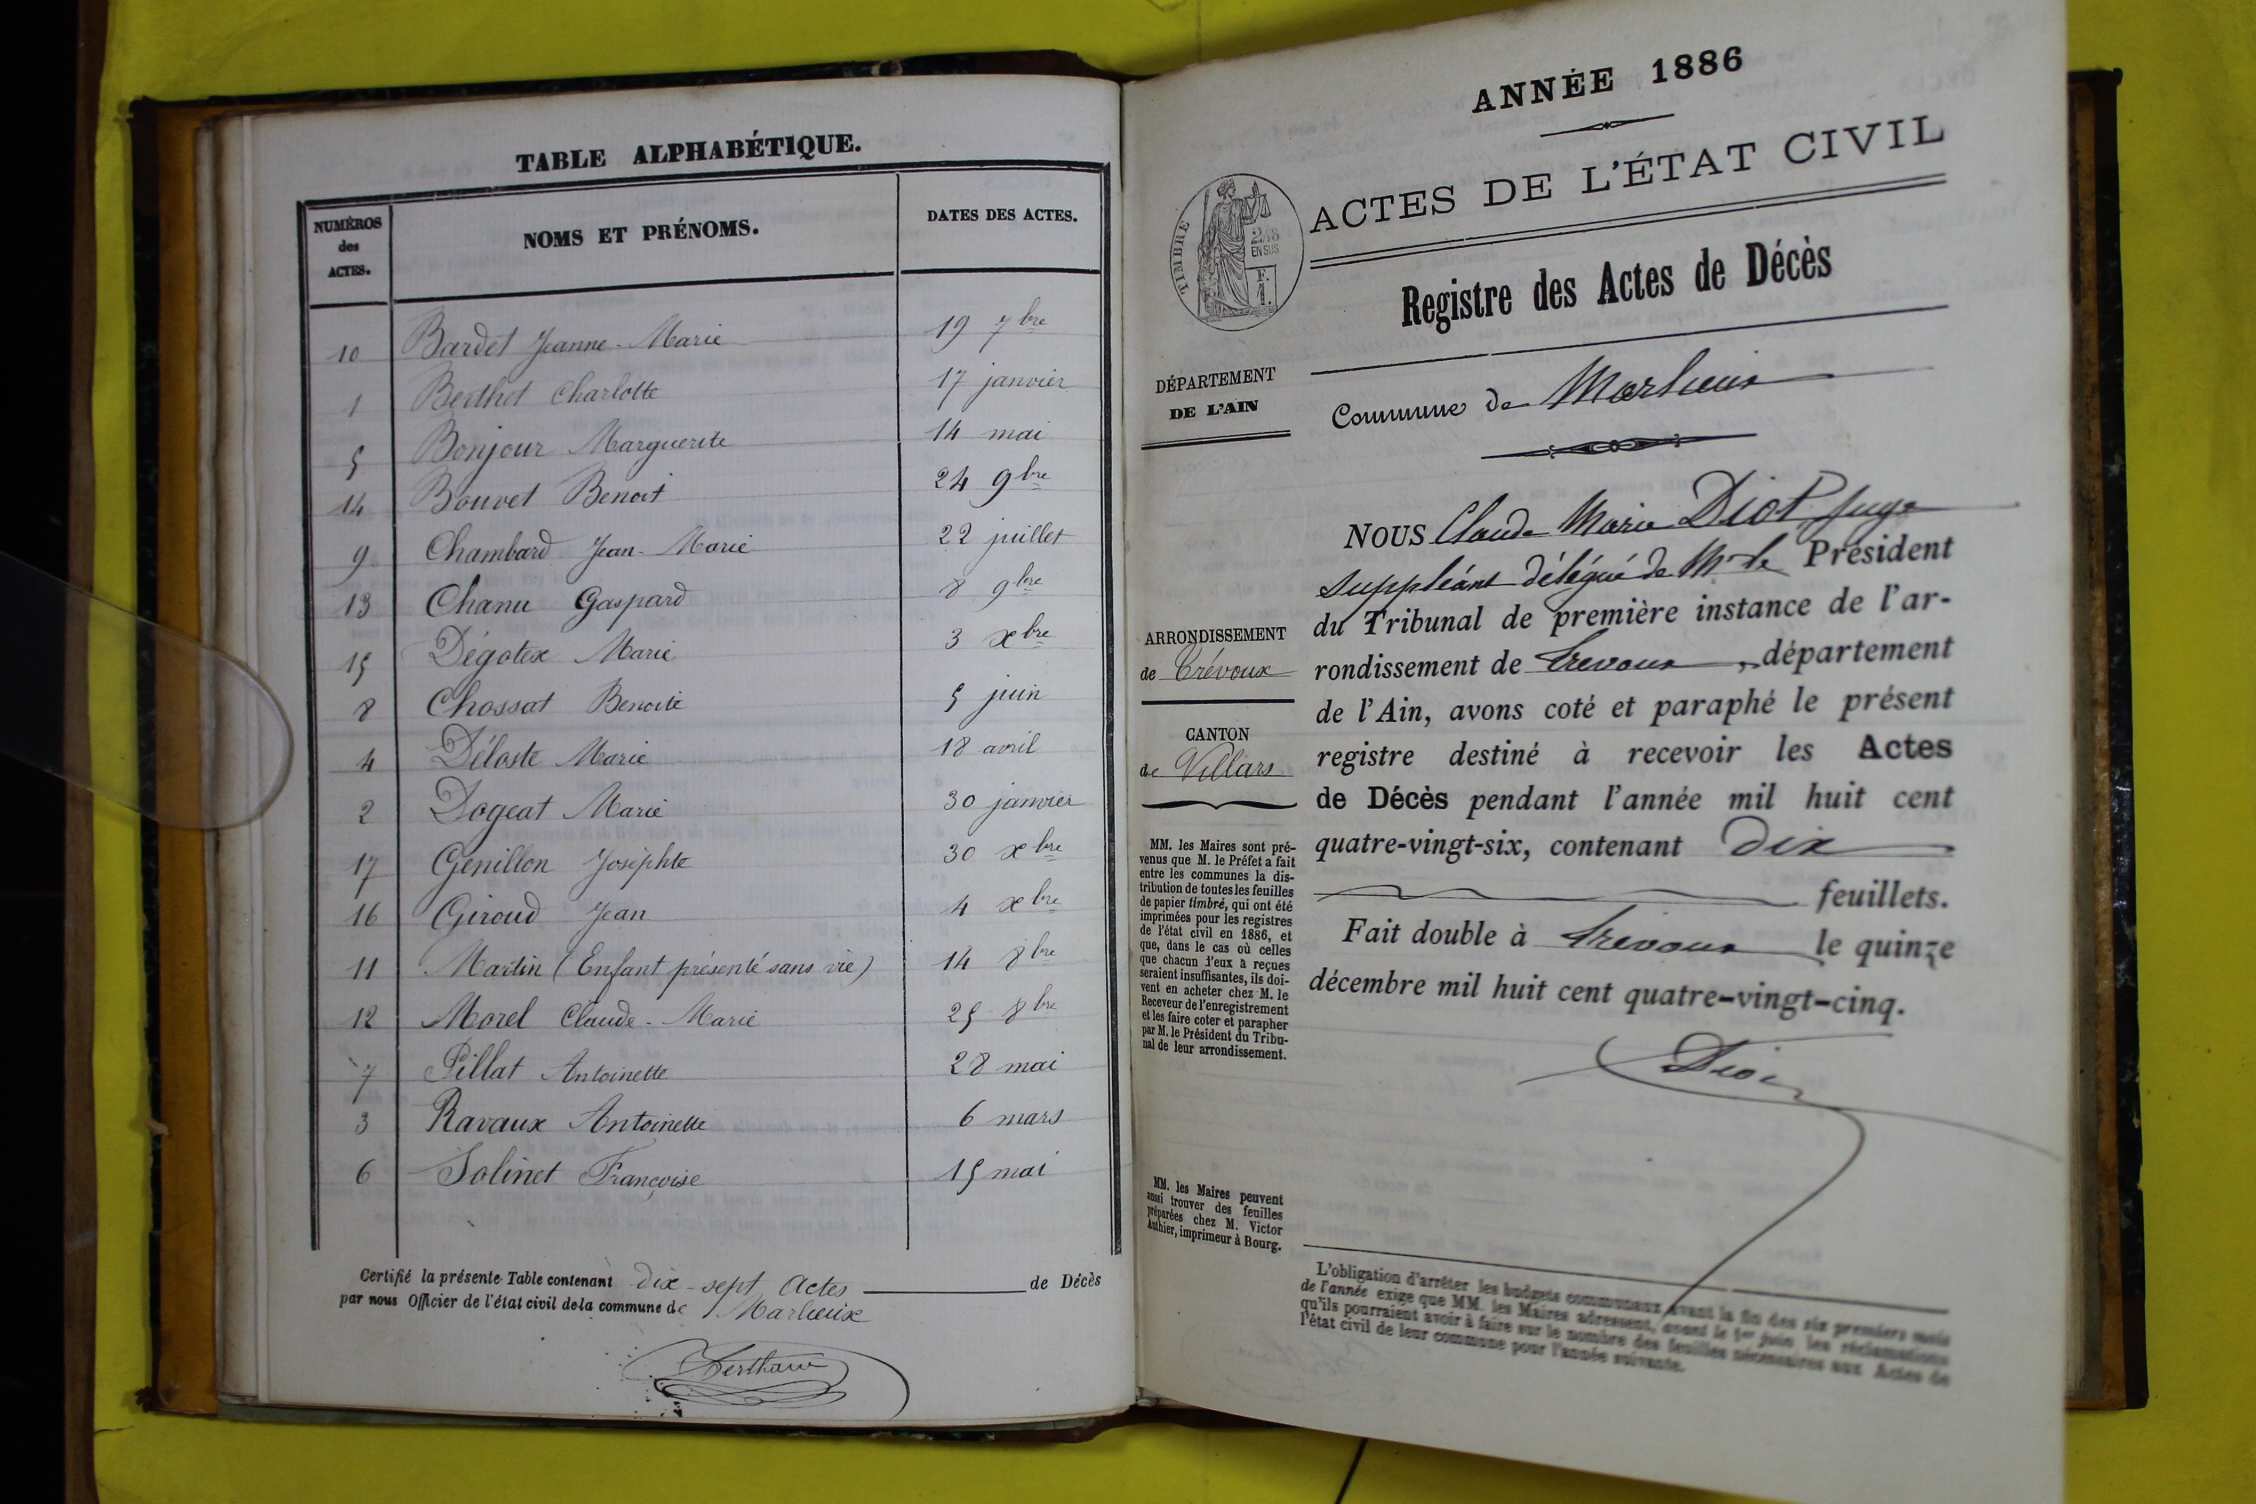 TABLE ALPHABÉTIQUE.
NUMÉROS des ACTES. NOMS ET PRÉNOMS. DATES DES ACTES.
10 Bardet Jeanne-Marie 19 7bre
1 Berthet Charlotte 17 janvier
5 Bonjour Marguerite 14 mai
14 Bouvet Benoit 24 9bre
9 Chambard Jean-Marie 22 juillet
13 Chanu Gaspard 8 9bre
15 Dégotex Marie 3 xbre
8 Chossat Benoite 5 juin
4 Déloste Marie 18 avril
2 Dogeat Marie 30 janvier
17 Genillon Josephte 30 xbre
16 Giroud Jean 4 xbre
11 Martin (Enfant présenté sans vie) 14 8bre
12 Morel Claude-Marie 25 8bre
7 Pillat Antoinette 28 mai
3 Ravaux Antoinette 6 mars
6 Solinet Françoise 15 mai
Certifié la présente Table contenant dix-sept actes de Décès
par nous Officier de l'état civil de la commune de Marlieux
ANNÉE 1886
ACTES DE L'ÉTAT CIVIL
TIMBRE
2/10
EN SUS
F.
1.
Registre des Actes de Décès
DÉPARTEMENT
DE L'AIN
Commune de Marlieux
ARRONDISSEMENT
de Trévoux
CANTON
de Villars
MM. les Maires sont pré-
venus que M. le Préfet a fait
entre les communes la dis-
tribution de toutes les feuilles
de papier timbré, qui ont été
imprimées pour les registres
de l'état civil en 1886, et
que, dans le cas où celles
que chacun d'eux a reçues
seraient insuffisantes, ils doi-
vent en acheter chez M. le
Receveur de l'enregistrement
et les faire coter et parapher
par M. le Président du Tribu-
nal de leur arrondissement.
MM. les Maires peuvent
aussi trouver des feuilles
préparées chez M. Victor
Authier, imprimeur à Bourg.
NOUS Claude Marie Diot Juge
suppléant délégué de Mr le Président
du Tribunal de première instance de l'ar-
rondissement de Trevoux, département
de l'Ain, avons coté et paraphé le présent
registre destiné à recevoir les Actes
de Décès pendant l'année mil huit cent
quatre-vingt-six, contenant dix
feuillets.
Fait double à Trevoux le quinze
décembre mil huit cent quatre-vingt-cinq.
Diot
L'obligation d'arrêter les budgets communaux avant la fin des six premiers mois
de l'année exige que MM. les Maires adressent, avant le 1er juin les réclamations
qu'ils pourraient avoir à faire sur le nombre des feuilles nécessaires aux Actes de
l'état civil de leur commune pour l'année suivante.